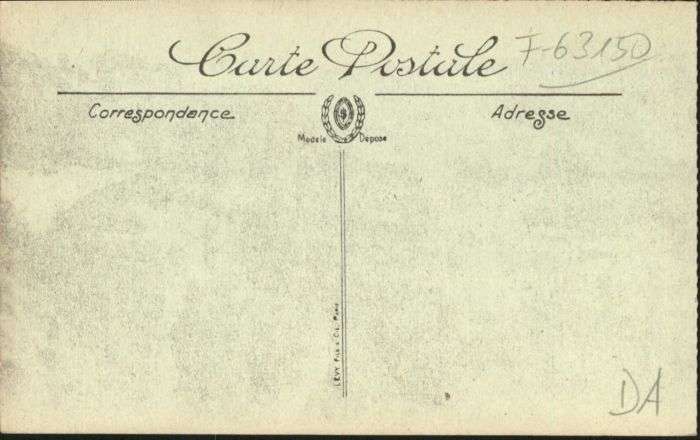 Carte Postale F-63150
Correspondance
Adresse
Modèle Déposé
LEVY FILS & CIE, PARIS
DA